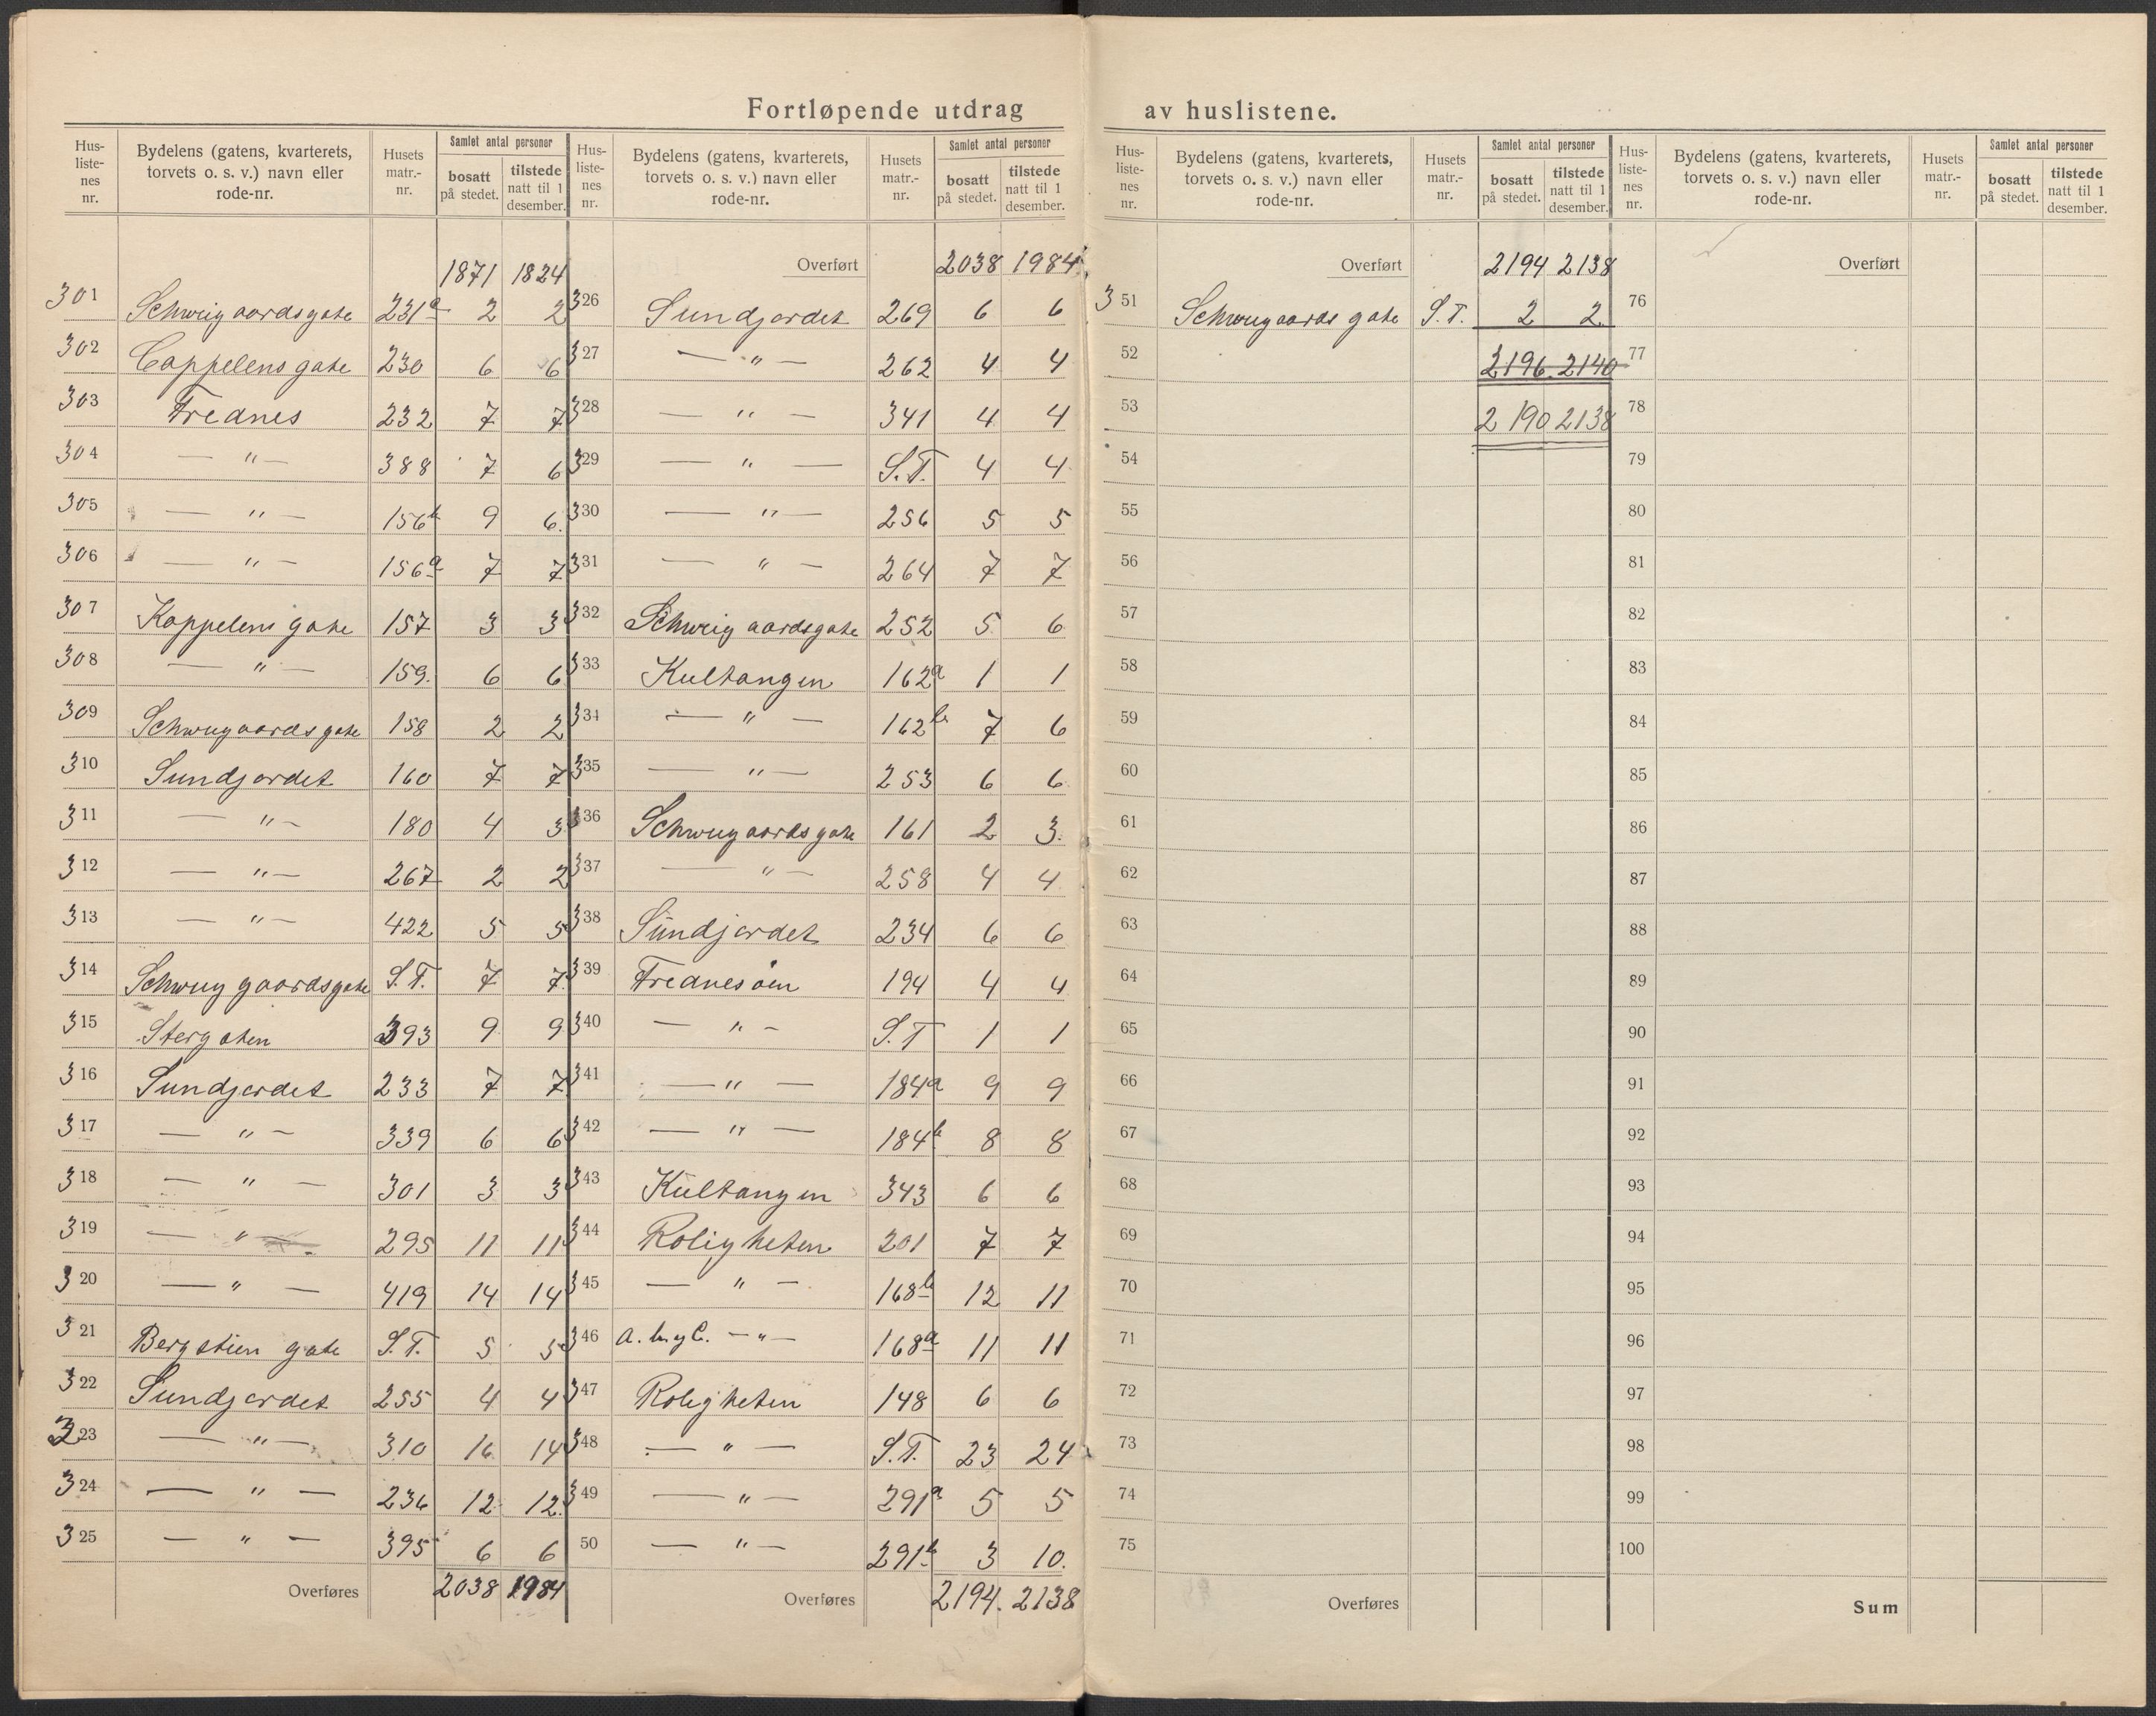 Fortløpende utdrag av huslistene.
Hus-liste-nes nr. | Bydelens (gatens, kvarterets, torvets o. s. v.) navn eller rode-nr. | Husets matr.-nr. | Samlet antal personer bosatt på stedet. | tilstede natt til 1 desember.
1871 1824
301 Schweigaardsgate 231a 2 2
302 Cappelens gate 230 6 6
303 Frednes 232 7 7
304 — " — 388 7 6
305 — " — 156b 9 6.
306 — " — 156a 7 7
307 Kappelens gate 157 3 3
308 — " — 159. 6 6
309 Schweigaards gate 158 2 2
310 Sundjordet 160 7 7
311 — " — 180 4 3
312 — " — 267 2 2
313 — " — 422 5 5
314 Schweigaardsgate S.T. 7 7
315 Stergaten 393 9 9
316 Sundjordet 233 7 7
317 — " — 339 6 6
318 — " — 301 3 3
319 — " — 295 11 11
320 — " — 419 14 14
321 Bergstien gate S.T. 5 5
322 Sundjordet 255 4 4
323 — " — 310 16 14
324 — " — 236 12 12.
325 — " — 395 6 6
Overføres 2038 1984
Hus-liste-nes nr. | Bydelens (gatens, kvarterets, torvets o. s. v.) navn eller rode-nr. | Husets matr.-nr. | Samlet antal personer bosatt på stedet. | tilstede natt til 1 desember.
Overført 2038 1984
326 Sundjordet 269 6 6
327 — " — 262 4 4
328 — " — 341 4 4
329 — " — S.T. 4 4
330 — " — 256 5 5
331 — " — 264 7 7
332 Schweigaardsgate 252 5 6
333 Kultangen 162a 1 1
334 — " — 162b 7 6
335 — " — 253 6 6
336 Schweigaards gate 161 2 3.
337 — " — 258 4 4
338 Sundjordet 234 6 6
339 Frednesøen 194 4 4
340 — " — S.T 1 1
341 — " — 184a 9 9
342 — " — 184b 8 8
343 Kultangen 343 6 6
344 Roligheten 201 7 7
345 — " — 168b 12 11
346 — " — 168a 11 11
347 Roligheten 148 6 6
348 — " — S.T. 23 24
349 — " — 291a 5 5
50 — " — 291b 3 10.
Overføres 2194. 2138
Hus-liste-nes nr. | Bydelens (gatens, kvarterets, torvets o. s. v.) navn eller rode-nr. | Husets matr.-nr. | Samlet antal personer bosatt på stedet. | tilstede natt til 1 desember.
Overført 2194 2138
351 Schweigaards gate S.T. 2 2.
52 2196. 2140
53 2190 2138
54
55
56
57
58
59
60
61
62
63
64
65
66
67
68
69
70
71
72
73
74
75
Overføres
Hus-liste-nes nr. | Bydelens (gatens, kvarterets, torvets o. s. v.) navn eller rode-nr. | Husets matr.-nr. | Samlet antal personer bosatt på stedet. | tilstede natt til 1 desember.
Overført
76
77
78
79
80
81
82
83
84
85
86
87
88
89
90
91
92
93
94
95
96
97
98
99
100
Sum